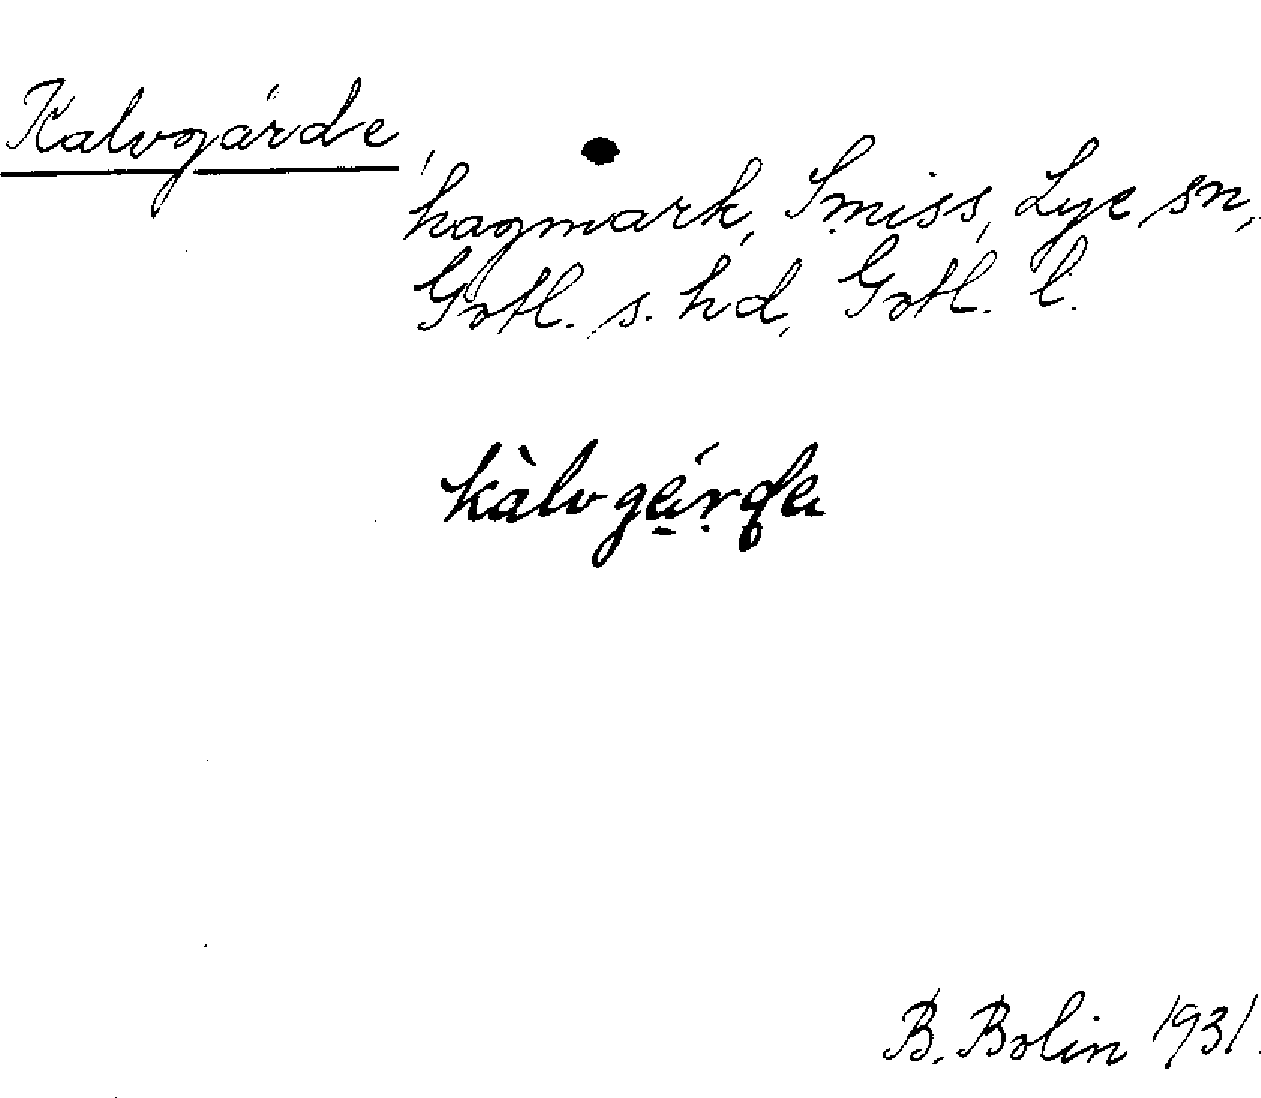 Kalvgárde,
hagmark, Smiss, Lye sn,
Gotl. s. hd, Gotl. l.
kàlvgárde
B. Bolin 1931.